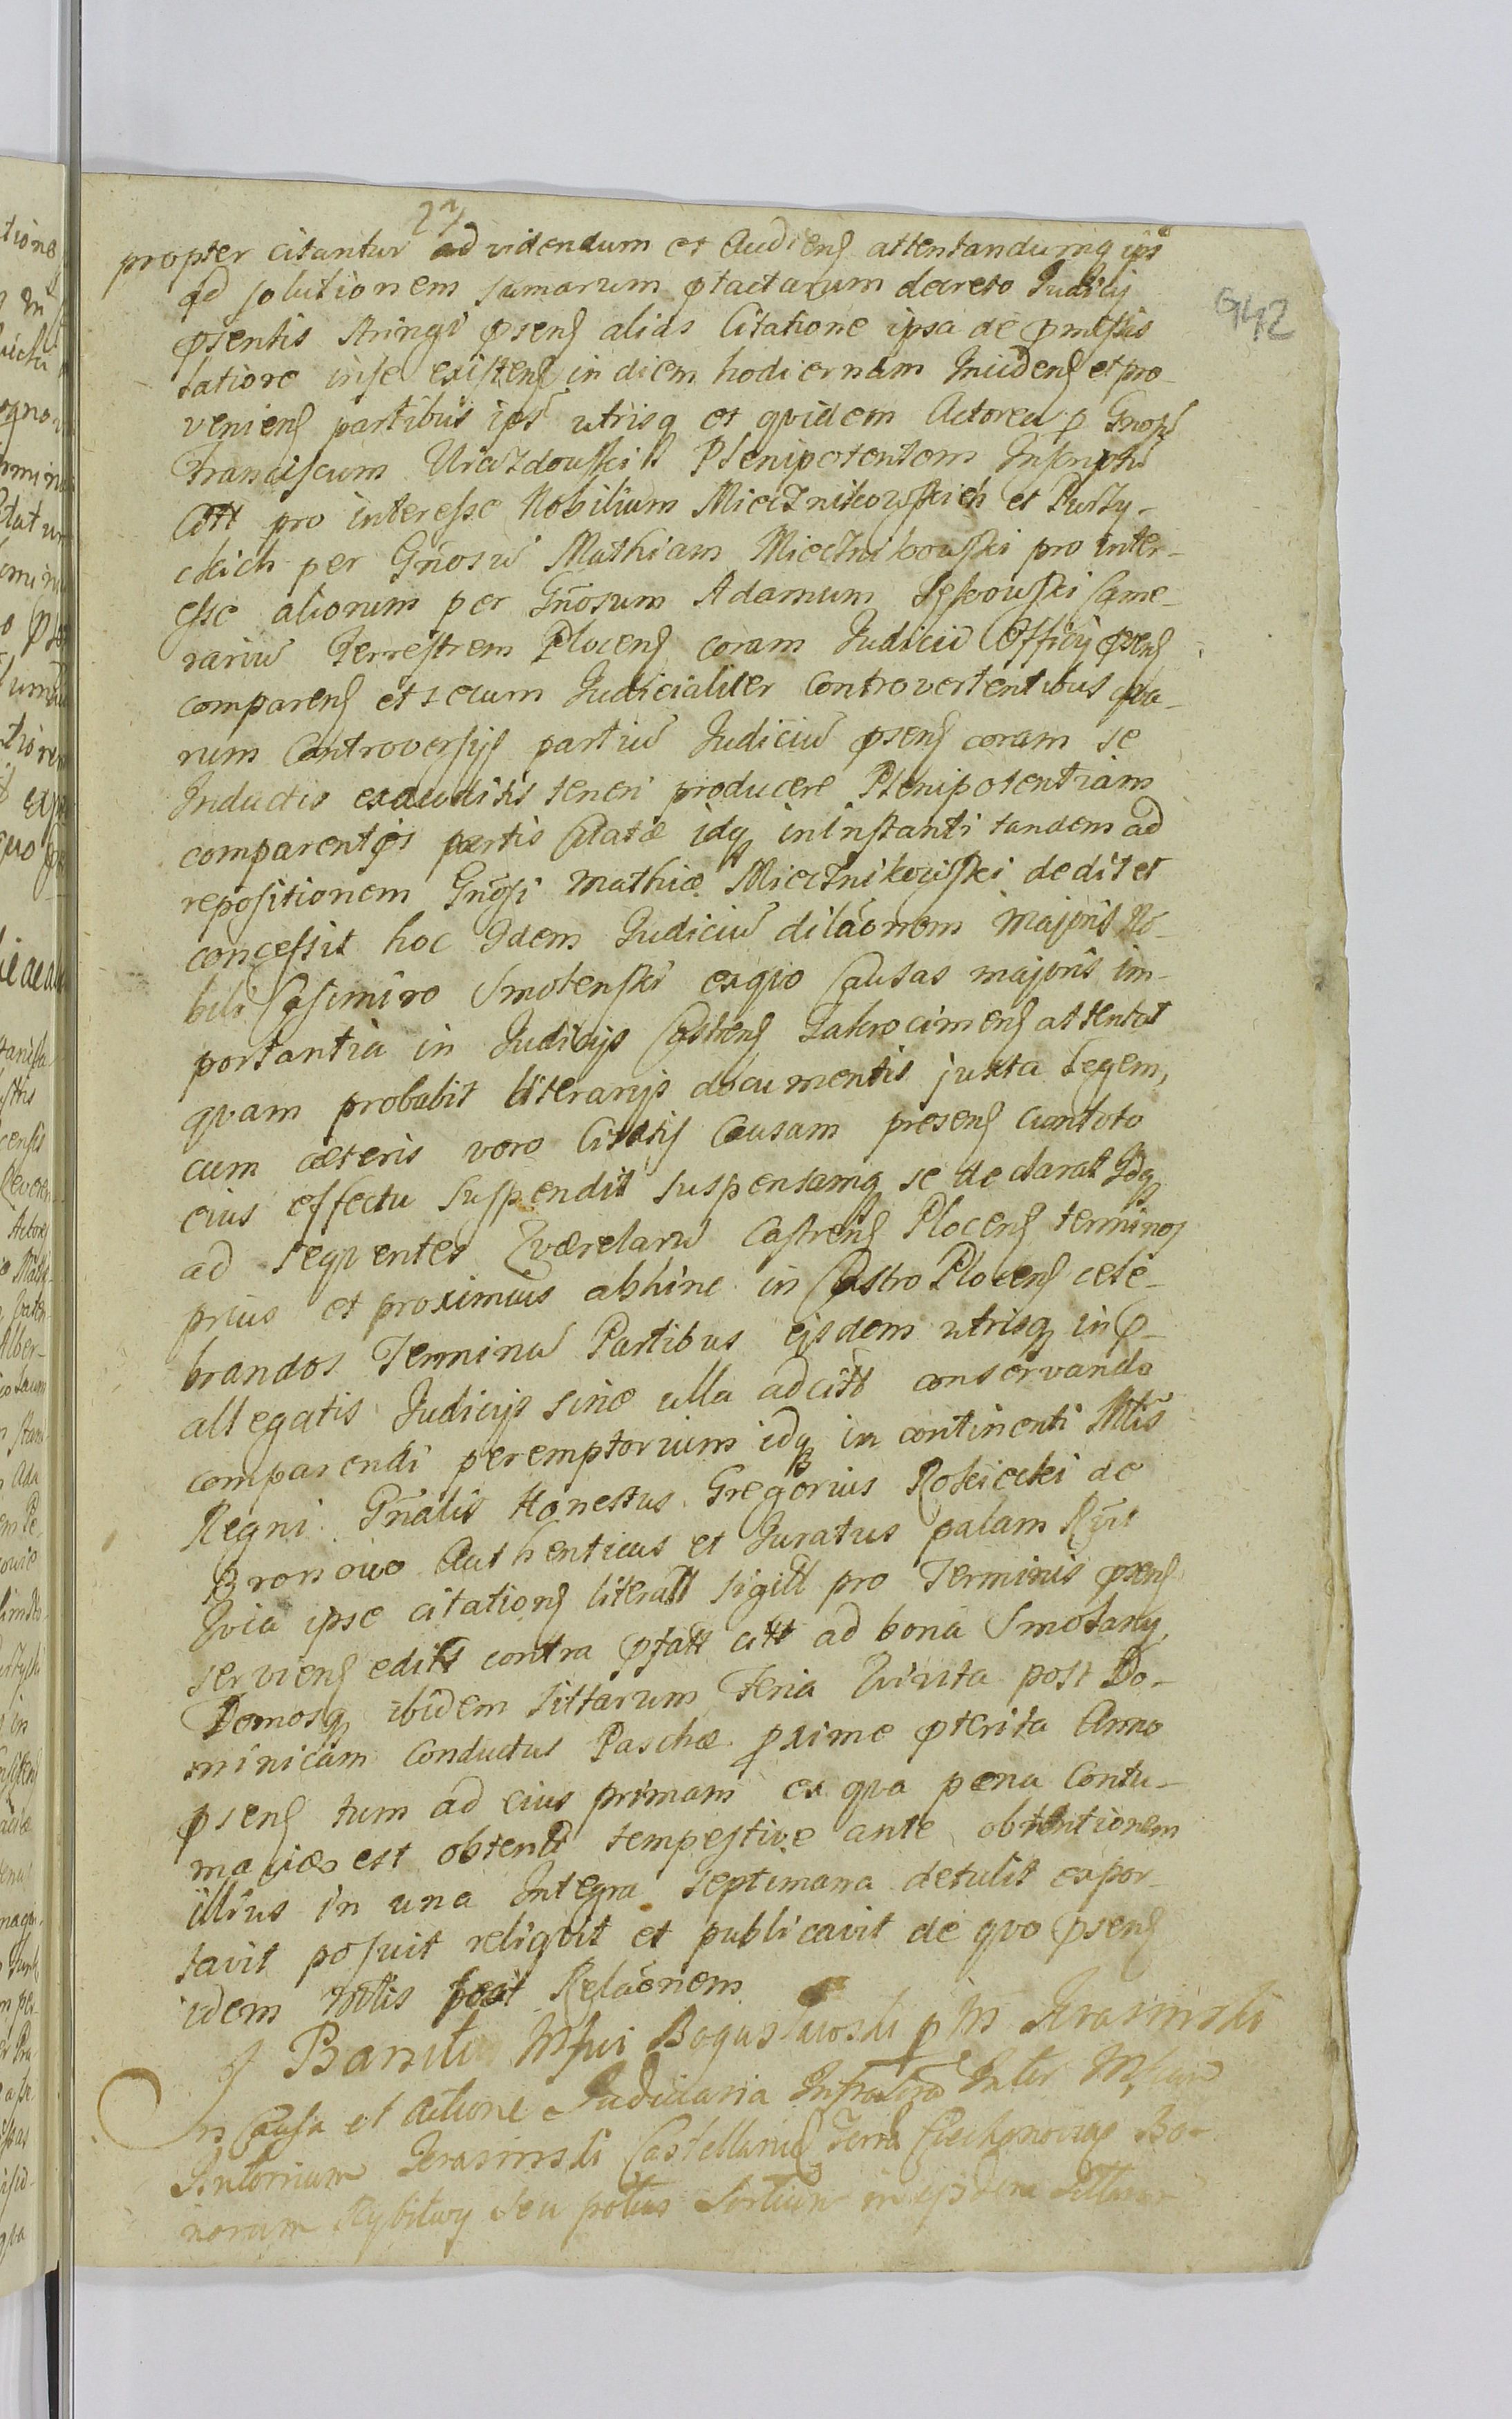 27
942
propter citantur ad videndum et Audien attentandumq ips
ad solutionem sumarum ptactarum decreto Judicij
psentis stringi psen alias Citatione ipsa de pmissis
latiore inse existen in diem hodiernam Inciden et pro-
venien partibus ips utrisq et qvidem Actorea p Gnos
Franciscum Uiazdouski Plenipotentem Inscript
Citt pro interesse Nobilium Miecznikowskich et Pusty-
ckich per Gnosu Mathiam Miecznikowski pro inter-
esse aliorum per Gnosum Adamum Sepowski Came-
rariu Terrestrem Plocen coram Judicio Officij psen
comparen et secum Judicialiter Controvertentibus qva-
rum Controversijs partiu Judiciu psen coram se
Inductis exauditis teneri producere Plenipotentiam
comparentes partis Citatae idq ininstanti tandem ad
repositionem Gnosi Mathiae Miecznikowski dedit et
concessit hoc Idem Judiciu dilaonem Majoris No-
bili Casimiro Smolenski exqvo Causas majoris im-
portantia in Judicijs Castren Zakrocimen attentat
qvam probabit literarijs documentis juxta Legem,
cum caeteris vero Citatis Causam presen cumtoto
eius effectu suspendit suspensamq se declarat Idq
ad seqventes Qvaerelaru Castren Plocen terminos
prius et proximius abhinc in Castro Plocen cele-
brandos Terminu Partibus ejsdem utrisq in p-
allegatis Judicijs sine ulla adcitt conservanda
comparendi peremptorium idq in continenti Mtis
Regni Gnalis Honestus Gregorius Rokicki de
Bronowo Authenticus et Juratus palam Rgt
Qvia ipse citation literatt sigill pro Terminis psen
servien editt contra pfatt citt ad bona Smolany
Domosq ibidem sittarum Feria Qvinta post Do-
minicam Conductus Paschae pxime pterita Anno
psen tum ad eius primam ex qva pena Contu-
maciae est obtent tempestive ante obtentionem
illius in una Integra septimana detulit expor-
tavit posuit reliqvit et publicavit de qvo psen
idem Mtis fecit Relaonem
J Banitu Mfici Boguslawski p M Krasinski
In Causa et Actione Judiciaria Infrascra Inter Mficum
Antonium Krasinski Castellanid Terrae Ciechanoviae Bo-
norum Rybitwy seu potius Sortium in ejsdem sittarum